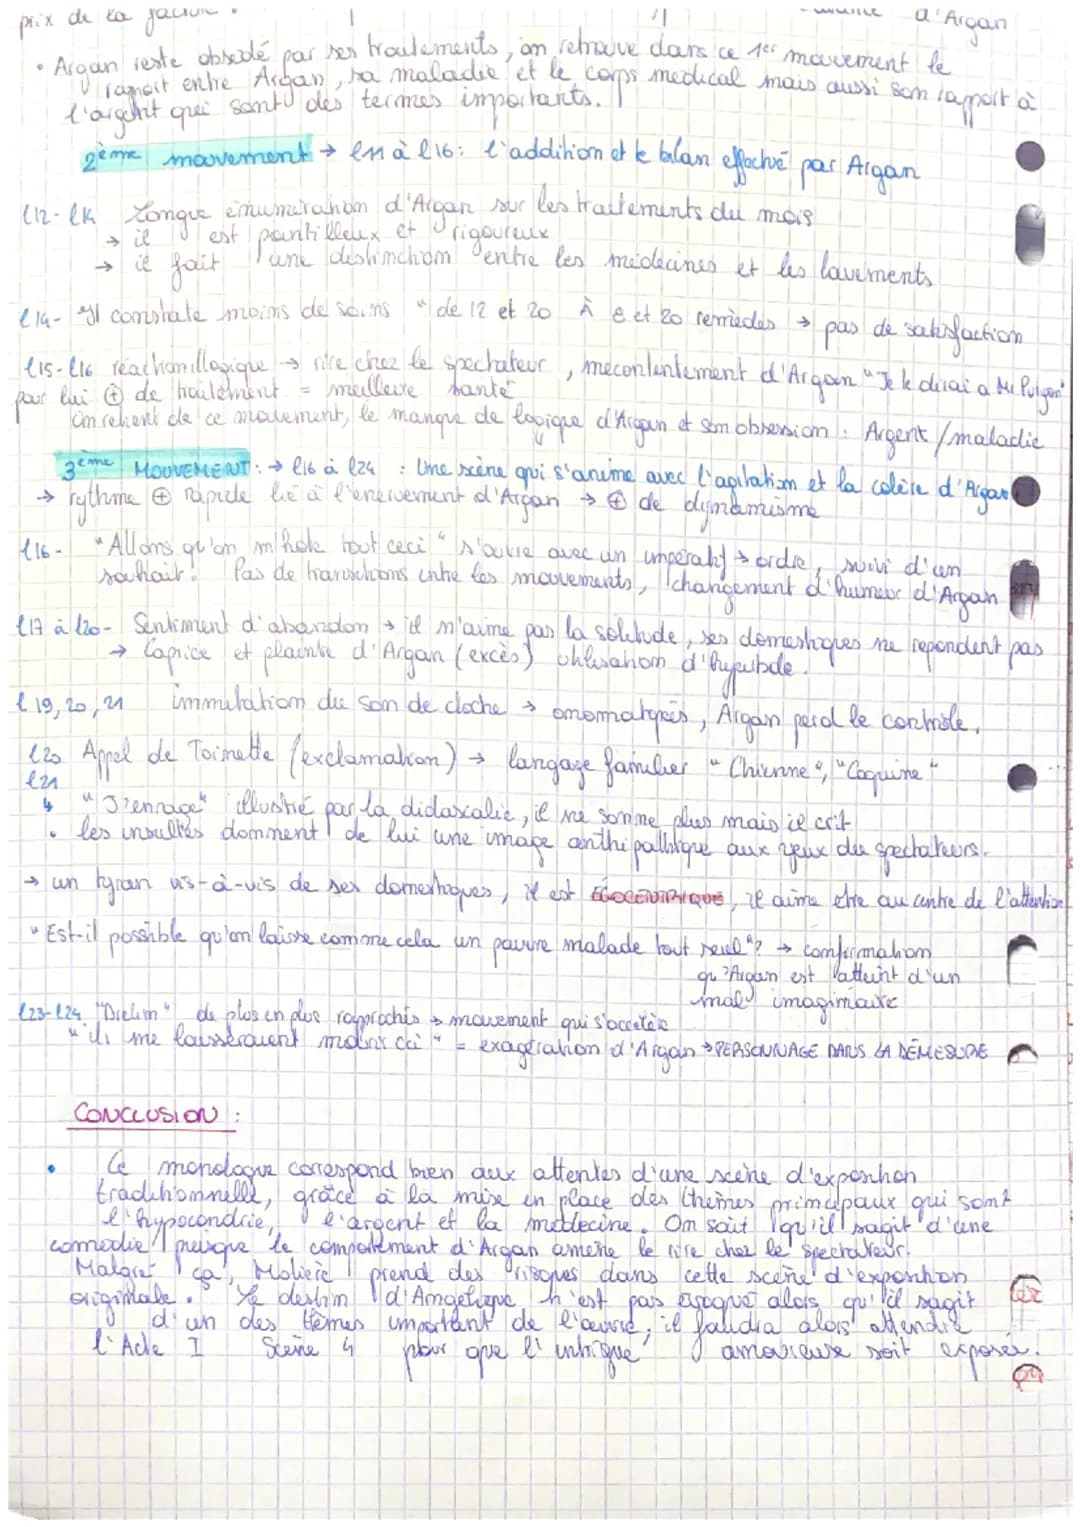 prix de la facture.
d'Argan
• Argan reste obsédé par ses traitements, on retrouve dans ce 1er mouvement le
rapport entre Argan, sa maladie et le corps médical mais aussi son rapport à
l'argent qui sont des termes importants.
2ème mouvement → l11 à l16: l'addition et le bilan effectué par Argan
l12-l14 Longue énumération d'Argan sur les traitements du mois
→ il est pointilleux et rigoureux
→ il fait une distinction entre les médecines et les lavements
l14- "Il constate moins de soins "de 12 et 20 À 8 et 20 remèdes → pas de satisfaction
l15-l16 réaction illogique → rire chez le spectateur, mécontentement d'Argan "Je le dirai a Mr Purgon"
pour lui ⊕ de traitement = meilleure santé
On retient de ce mouvement, le manque de logique d'Argan et son obsession : Argent/maladie
3ème MOUVEMENT: → l16 à l24 : Une scène qui s'anime avec l'agitation et la colère d'Argan
→ rythme ⊕ rapide lié à l'énervement d'Argan → ⊕ de dynamisme
l16- "Allons qu'on m'hote tout ceci" s'ouvre avec un impératif → ordre, suivi d'un
souhait. Pas de transitions entre les mouvements, changement d'humeur d'Argan
l17 à l20- Sentiment d'abandon → il n'aime pas la solitude, ses domestiques ne repondent pas
→ Caprice et plainte d'Argan (excès) utilisation d'hyperbole.
l19, 20, 21 immitation du son de cloche → onomatopées, Argan perd le contrôle.
l20 Appel de Toinette (exclamation) → langage familier "Chienne", "Coquine"
l21
↳ "J'enrage" illustré par la didascalie, il ne sonne plus mais il crit
• les insultes donnent de lui une image anthipathique aux yeux du spectateurs.
→ un tyran vis-à-vis de ses domestiques, il est EGOCENTRIQUE, il aime etre au centre de l'attention
"Est-il possible qu'on laisse comme cela un pauvre malade tout seul"? → confirmation
qu'Argan est atteint d'un
mal imaginaire
l23-l24 "Drelim" de plus en plus rapprochés → mouvement qui s'accelère
"ils me laisseraient mourir ici" = exagération d'Argan → PERSONNAGE DANS LA DÉMESURE
CONCLUSION :
• Ce monologue correspond bien aux attentes d'une scène d'exposition
traditionnelle, grâce à la mise en place des thèmes principaux qui sont
l'hypocondrie, l'argent et la médecine. On sait qu'il sagit d'une
comédie puisque le comportement d'Argan amène le rire chez le spectateur.
Malgré ça, Molière prend des risques dans cette scène d'exposition
originale. Le destin d'Angelique n'est pas évoqué alors qu'il sagit
d'un des thèmes important de l'œuvre, il faudra alors attendre
l'Acte I Scène 4 pour que l'intrigue amoureuse soit exposée.